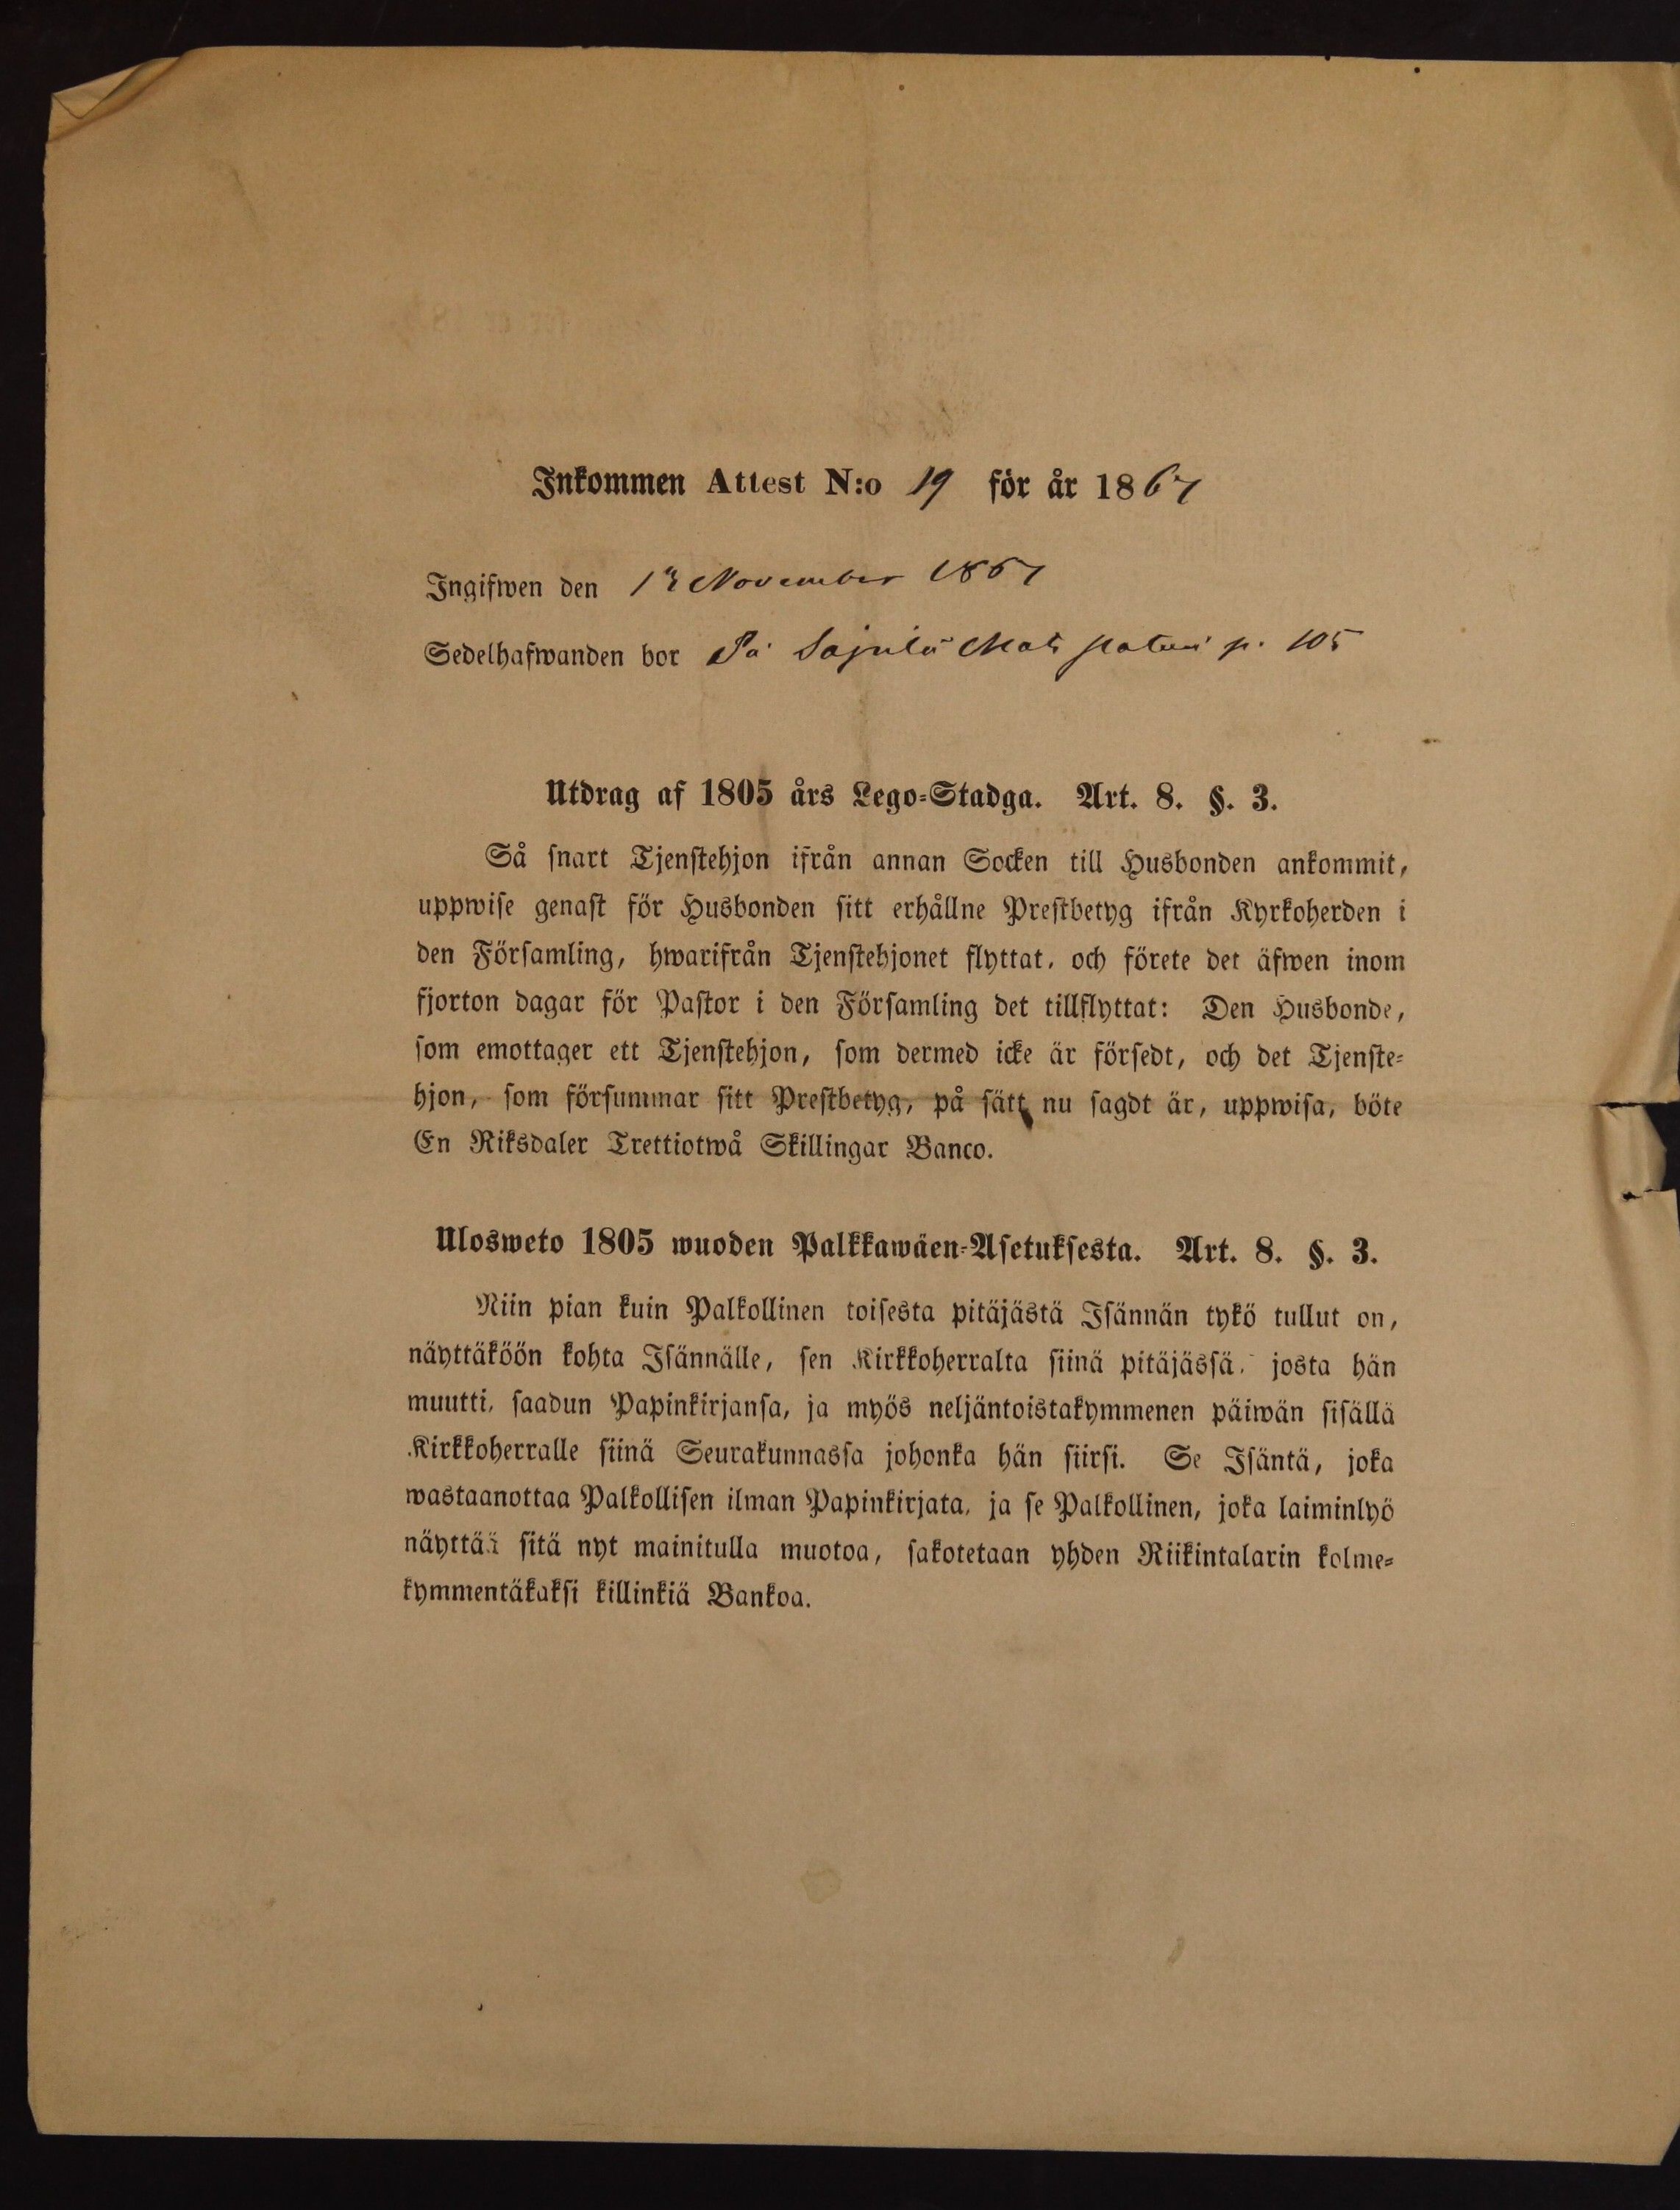 Inkommen Attest N:o 19 för år 1867
Ingifwen den 13 November 1867
Sedelhafwanden bor På Sajulä Mats p. 105
Utdrag af 1805 års Lego-Stadga. Art. 8. §. 3.
Så snart Tjenstehjon ifrån annan Socken till Husbonden ankommit,
uppwise genast för Husbonden sitt erhållne Prestbetyg ifrån Kyrkoherden i
den Församling, hwarifrån Tjenstehjonet flyttat, och förete det äfwen inom
fjorton dagar för Pastor i den Församling det tillflyttat: Den Husbonde,
som emottager ett Tjenstehjon, som dermed icke är försedt, och det Tjenste-
hjon, som försummar sitt Prestbetyg, på sätt nu sagdt är, uppwisa, böte
En Riksdaler Trettiotwå Skillingar Banco.
Ulosweto 1805 wuoden Palkkawäen-Asetuksesta. Art. 8. §. 3.
Niin pian kuin Palkollinen toisesta pitäjästä Isännän tykö tullut on,
näyttäköön kohta Isännälle, sen Kirkkoherralta siinä pitäjässä, josta hän
muutti, saadun Papinkirjansa, ja myös neljäntoistakymmenen päiwän sisällä
Kirkkoherralle siinä Seurakunnassa johonka hän siirsi. Se Isäntä, joka
wastaanottaa Palkollisen ilman Papinkirjata, ja se Palkollinen, joka laiminlyö
näyttää sitä nyt mainitulla muotoa, sakotetaan yhden Riikintalarin kolme-
kymmentäkaksi killinkiä Bankoa.